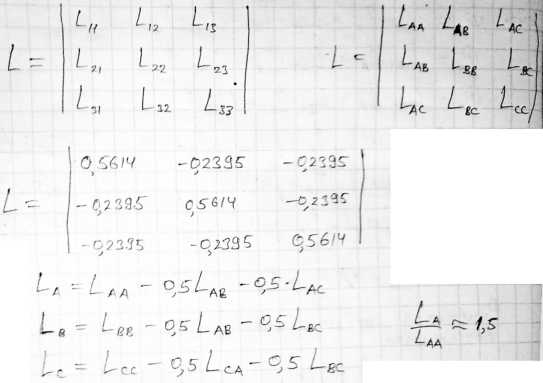 L = | L₁₁ L₁₂ L₁₃ |
| L₂₁ L₂₂ L₂₃ |
| L₃₁ L₃₂ L₃₃ |
L = | L_AA L_AB L_AC |
| L_AB L_BB L_BC |
| L_AC L_BC L_CC |
L = | 0,5614 -0,2395 -0,2395 |
| -0,2395 0,5614 -0,2395 |
| -0,2395 -0,2395 0,5614 |
L_A = L_AA - 0,5L_AB - 0,5·L_AC
L_B = L_BB - 0,5L_AB - 0,5L_BC
L_C = L_CC - 0,5L_CA - 0,5L_BC
L_A / L_AA ≈ 1,5